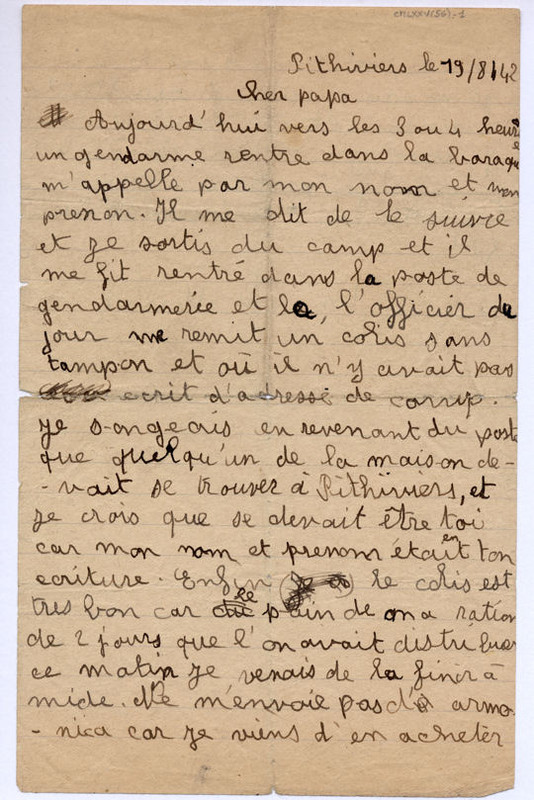 CMLXXV(56)-1
Pithiviers le 19/8/42
cher papa
Aujourd'hui vers les 3 ou 4 heures
un gendarme rentre dans la baraque
m'appelle par mon nom et mon
prenon. Il me dit de le suivre
et je sortis du camp et il
me fit rentré dans la poste de
gendarmerie et la, l'officier de
jour me remit un colis sans
tampon et où il n'y avait pas
ecrit d'adresse de camp.
Je songeais en revenant du poste
que quelqu'un de la maison de-
-vait se trouver à Pithiviers, et
je crois que se devait être toi
car mon nom et prenom était en ton
ecriture. Enfin le colis est
tres bon car le pain de ma ration
de 2 jours que l'on avait distribuer
ce matin je venais de la finir à
midi. Ne m'envoie pas d' armo-
-nica car je viens d'en acheter